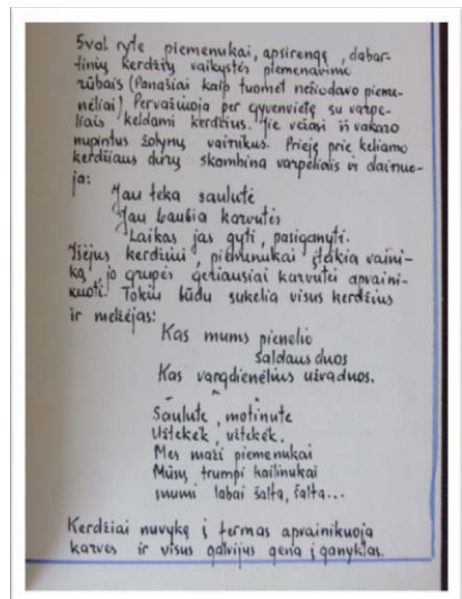 5val ryte piemenukai, apsirengę, dabar-
tinių kerdžių vaikystės piemenavimo
rūbais (Panašiai kaip tuomet nešiodavo pieme-
nėliai) Pervažiuoja per gyvenvietę su varpe-
liais keldami kerdžius. Jie vežasi iš vakaro
nupintus žolynų vainikus. Prieję prie keliamo
kerdžiaus durų skambina varpeliais ir dainuo-
ja:
Jau teka saulutė
Jau baubia karvutės
Laikas jas gyti, pasiganyti.
Išėjus kerdžiui, piemenukai įteikia vaini-
ką, jo grupės geriausiai karvutei apvaini-
kuoti. Tokiu būdu sukelia visus kerdžius
ir melžėjas:
Kas mums pienelio
saldaus duos
Kas vargdienėlius užvaduos.
Saulute, motinute
Užtekėk, užtekėk.
Mes maži piemenukai
Mūsų trumpi kailinukai
mums labai šalta, šalta...
Kerdžiai nuvykę į fermas apvainikuoja
karves ir visus galvijus gena į ganyklas.